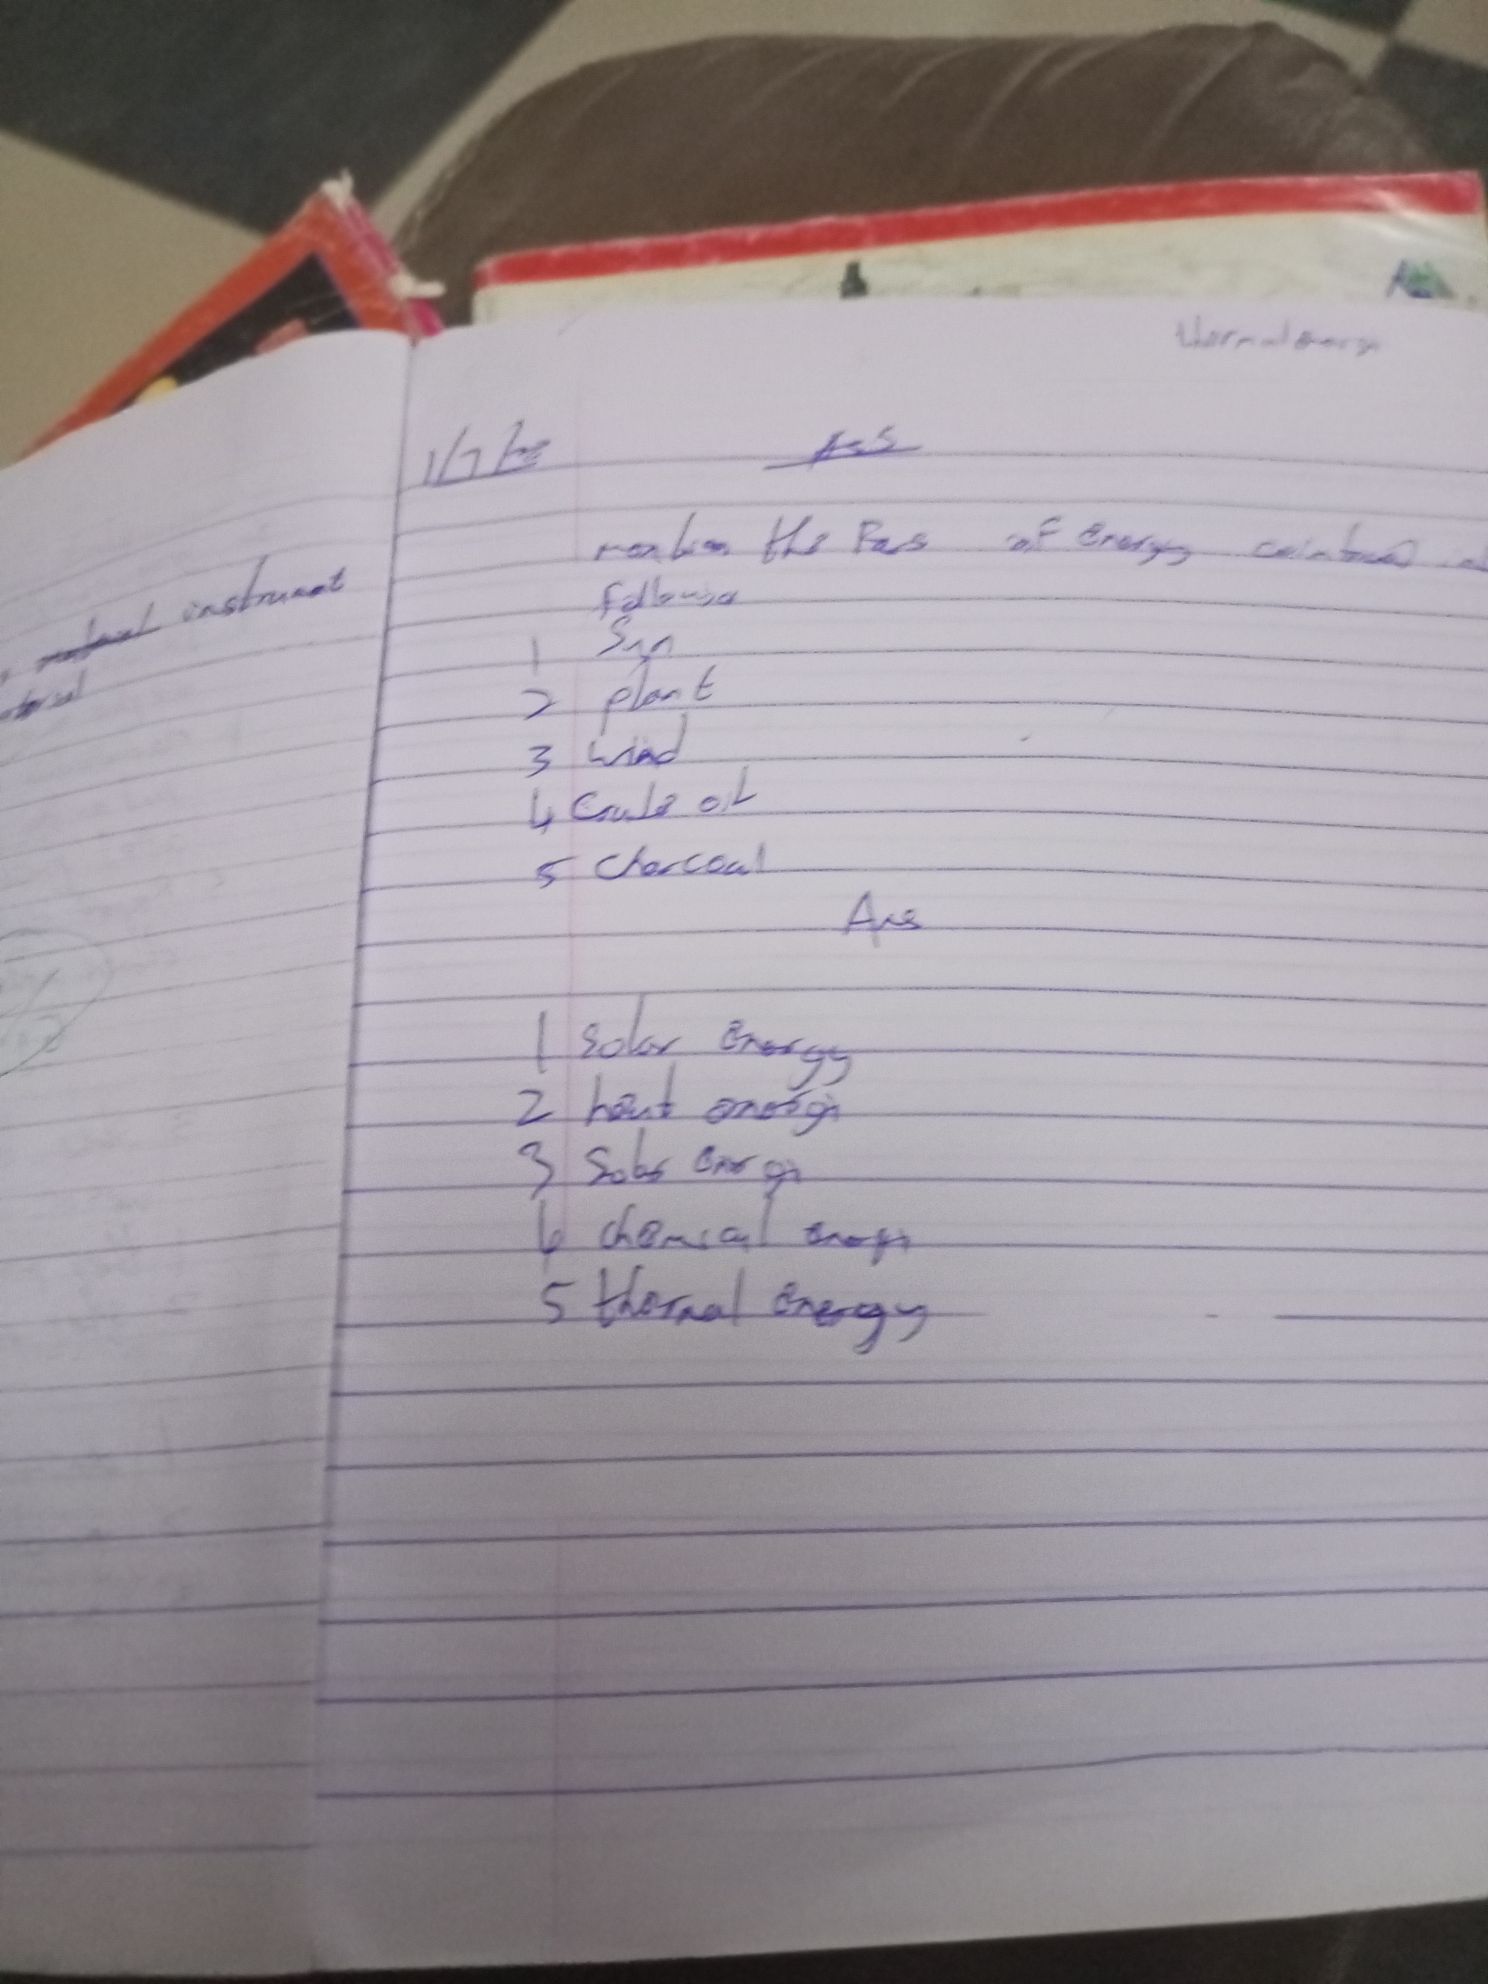 thermal energy
1/7/
Ass
mention the Fors of Energy
following
1 Sun
2 plant
3 wind
4 Crude oil
5 Charcoal
Ans
1 Solar Energy
2 heat energy
3 Solar Energy
4 chemical energy
5 thermal Energy
instrument